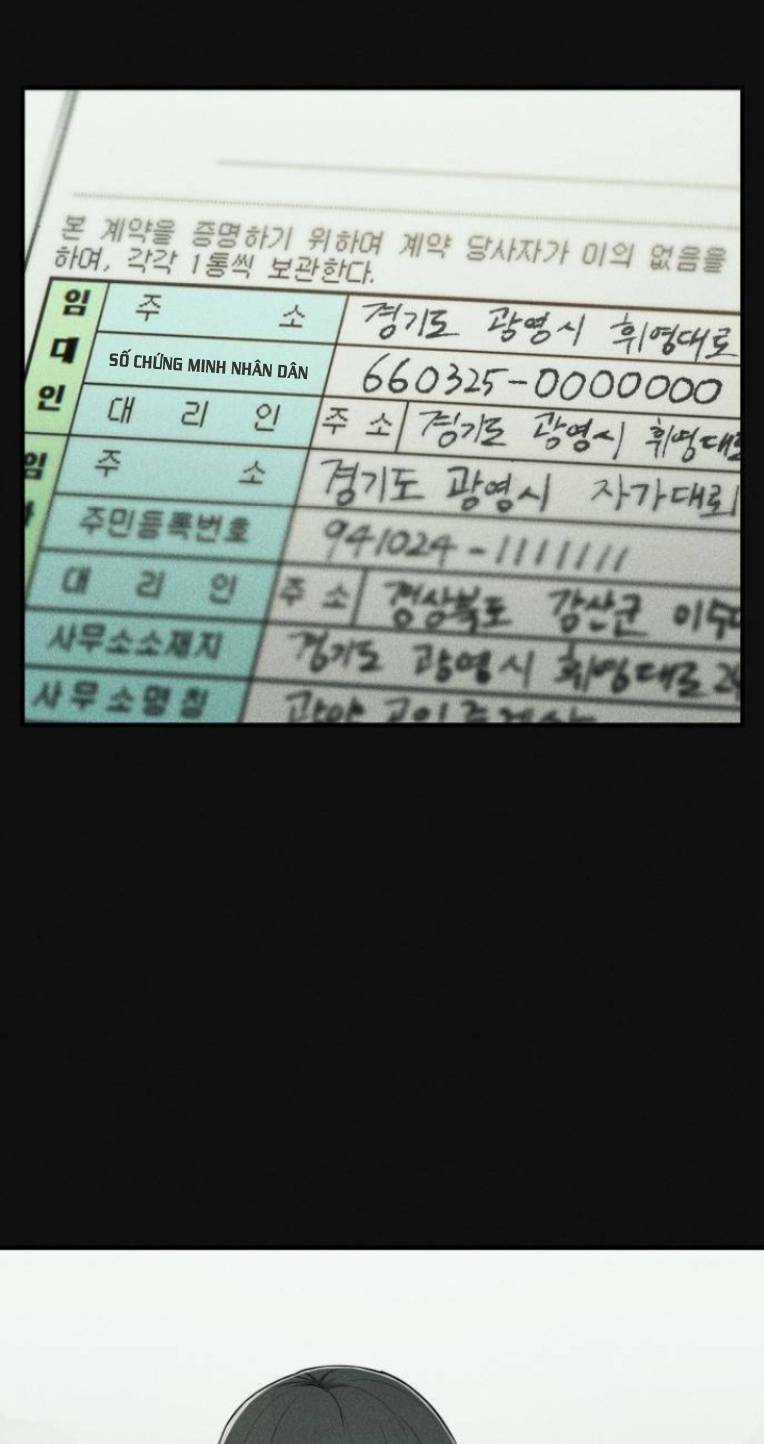 본 계약을 증명하기 위하여 계약 당사자가 이의 없음을
하며, 각각 1통씩 보관한다.
임대인
주 소 경기도 광영시 휘영대로
SỐ CHỨNG MINH NHÂN DÂN 660325-0000000
대 리 인 주 소 경기도 광영시 휘영대로
임
주 소 경기도 광영시 자가대로
주민등록번호 941024-1111111
대 리 인 주 소 경상북도 강산군 이수
사무소소재지 경기도 광영시 휘영대로 24
사무소명칭